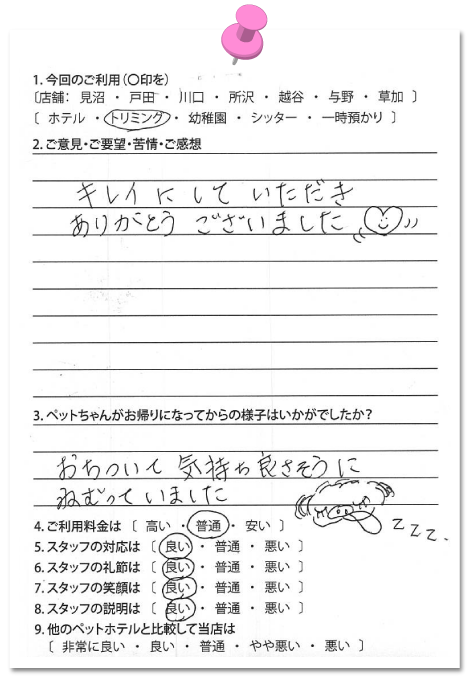 1.今回のご利用(〇印を)
〔店舗: 見沼 ・ 戸田 ・ 川口 ・ 所沢 ・ 越谷 ・ 与野 ・ 草加 〕
〔 ホテル ・ トリミング ・ 幼稚園 ・ シッター ・ 一時預かり 〕
2.ご意見・ご要望・苦情・ご感想
キレイにして いただき
ありがとう ございました
3.ペットちゃんがお帰りになってからの様子はいかがでしたか?
おちついて 気持ち良さそうに
ねむっていました
zzz.
4.ご利用料金は 〔 高い ・ 普通 ・ 安い 〕
5.スタッフの対応は 〔 良い ・ 普通 ・ 悪い 〕
6.スタッフの礼節は 〔 良い ・ 普通 ・ 悪い 〕
7.スタッフの笑顔は 〔 良い ・ 普通 ・ 悪い 〕
8.スタッフの説明は 〔 良い ・ 普通 ・ 悪い 〕
9.他のペットホテルと比較して当店は
〔 非常に良い ・ 良い ・ 普通 ・ やや悪い ・ 悪い 〕